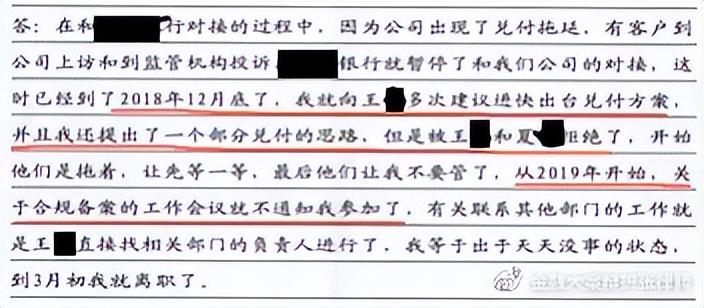 答：在和行对接的过程中，因为公司出现了兑付拖延，有客户到
公司上访和到监管机构投诉，银行就暂停了和我们公司的对接，这
时已经到了2018年12月底了，我就向王多次建议进快出台兑付方案，
并且我还提出了一个部分兑付的思路，但是被王和夏拒绝了，开始
他们是拖着，让先等一等，最后他们让我不要管了，从2019年开始，关
于合规备案的工作会议就不通知我参加了，有关联系其他部门的工作就
是王直接找相关部门的负责人进行了，我等于出于天天没事的状态，
到3月初我就离职了。